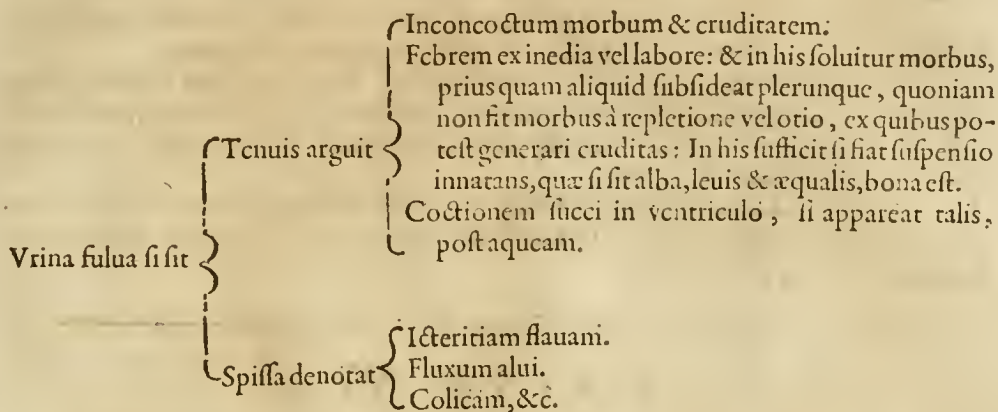 Inconcoctum morbum & cruditatem:
Febrem ex inedia vel labore: & in his ſoluitur morbus,
prius quam aliquid ſubſideat plerunque, quoniam
non fit morbus à repletione vel otio, ex quibus po-
teſt generari cruditas: In his ſufficit ſi fiat ſuſpenſio
innatans, quæ ſi ſit alba, leuis & æqualis, bona eſt.
Tenuis arguit
Coctionem ſucci in ventriculo, ſi appareat talis,
poſt aqueam.
Vrina fulua ſi ſit
Icteritiam flauam.
Spiſſa denotat
Fluxum alui.
Colicam, &c.